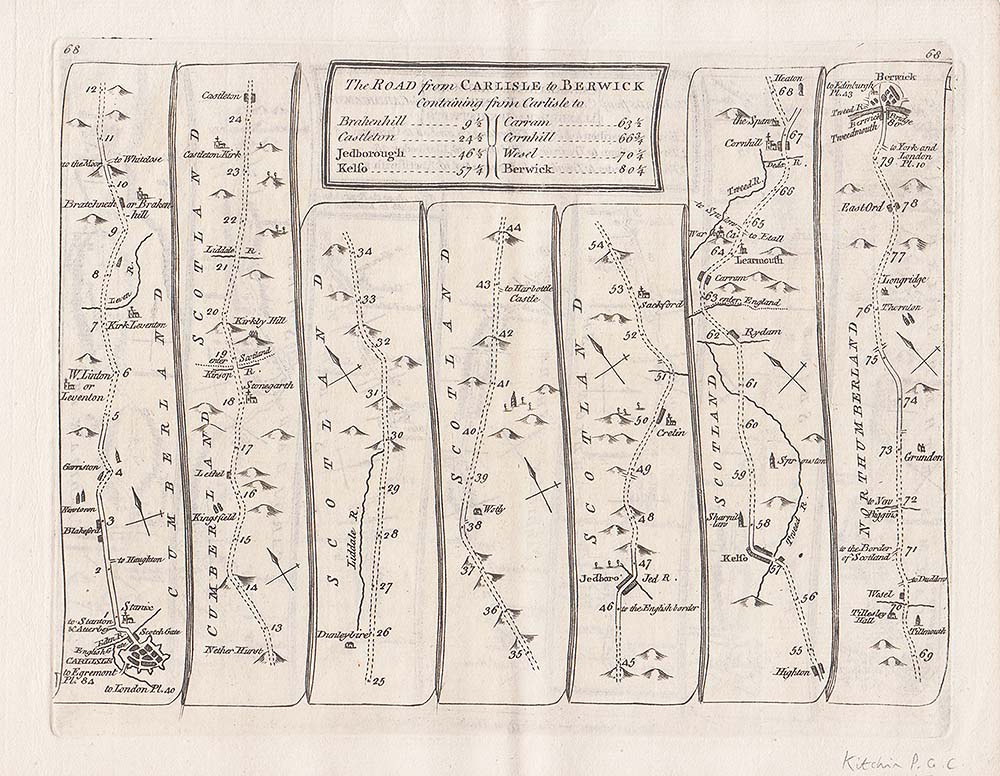 68
68
The ROAD from CARLISLE to BERWICK
Containing from Carlisle to
Brakenhill 9¼ Carram 63¼
Castleton 24¼ Cornhill 66¾
Jedborough 46¼ Wesel 70¼
Kelso 57¼ Berwick 80¼
12
11
to the Moor
to Whiteclose
10
Bratchneth or Brakenhill
9
8
Leven R.
7
Kirk Leventon
6
W. Linton
or
Leventon
5
Garriston
4
Newtown
3
Blakeford
to Haughton
2
1
Stanix
to Stanton
& Aterbey
Scotch Gate
Eden R.
English G.
CARLISLE
to Egremont
Pl. 84
to London Pl. 40
CUMBERLAND
Castleton
24
Castleton Kirk
23
22
Liddale R.
21
20
Kirkby Hill
19
enter Scotland
Kirsop R.
Stonegarth
18
17
16
Kingsfield
15
14
13
Nether Hurst
SCOTLAND
CUMBERLAND
34
33
32
31
30
29
28
27
26
25
Liddale R.
Dunleybire
SCOTLAND
44
43
to Harbottle
Castle
42
41
40
39
Wotly
38
37
36
35
SCOTLAND
54
53
Sackford
52
51
50
Crelin
49
48
47
Jedboro
Jed R.
46
to the English border
45
SCOTLAND
Heaton
68
the Spaw
67
Cornhill
Tweed R.
66
65
to Etall
64
Learmouth
Carram
63
enter England
62
Rydam
61
60
59
Sprouston
58
Kelso
57
Tweed R.
56
55
Highton
SCOTLAND
Berwick
to Edinburgh
Pl. 43
Tweed R.
Berwick Bridge
80
Tweedmouth
to York and
London
Pl. 10
79
East Ord
78
77
Longridge
76
Thornton
75
74
73
Grundon
72
to New
Biggin
71
to the Border
of Scotland
to Dudden
Wesel
70
Tillesley
Hall
Tillmouth
69
NORTHUMBERLAND
Kitchin P. G. C.